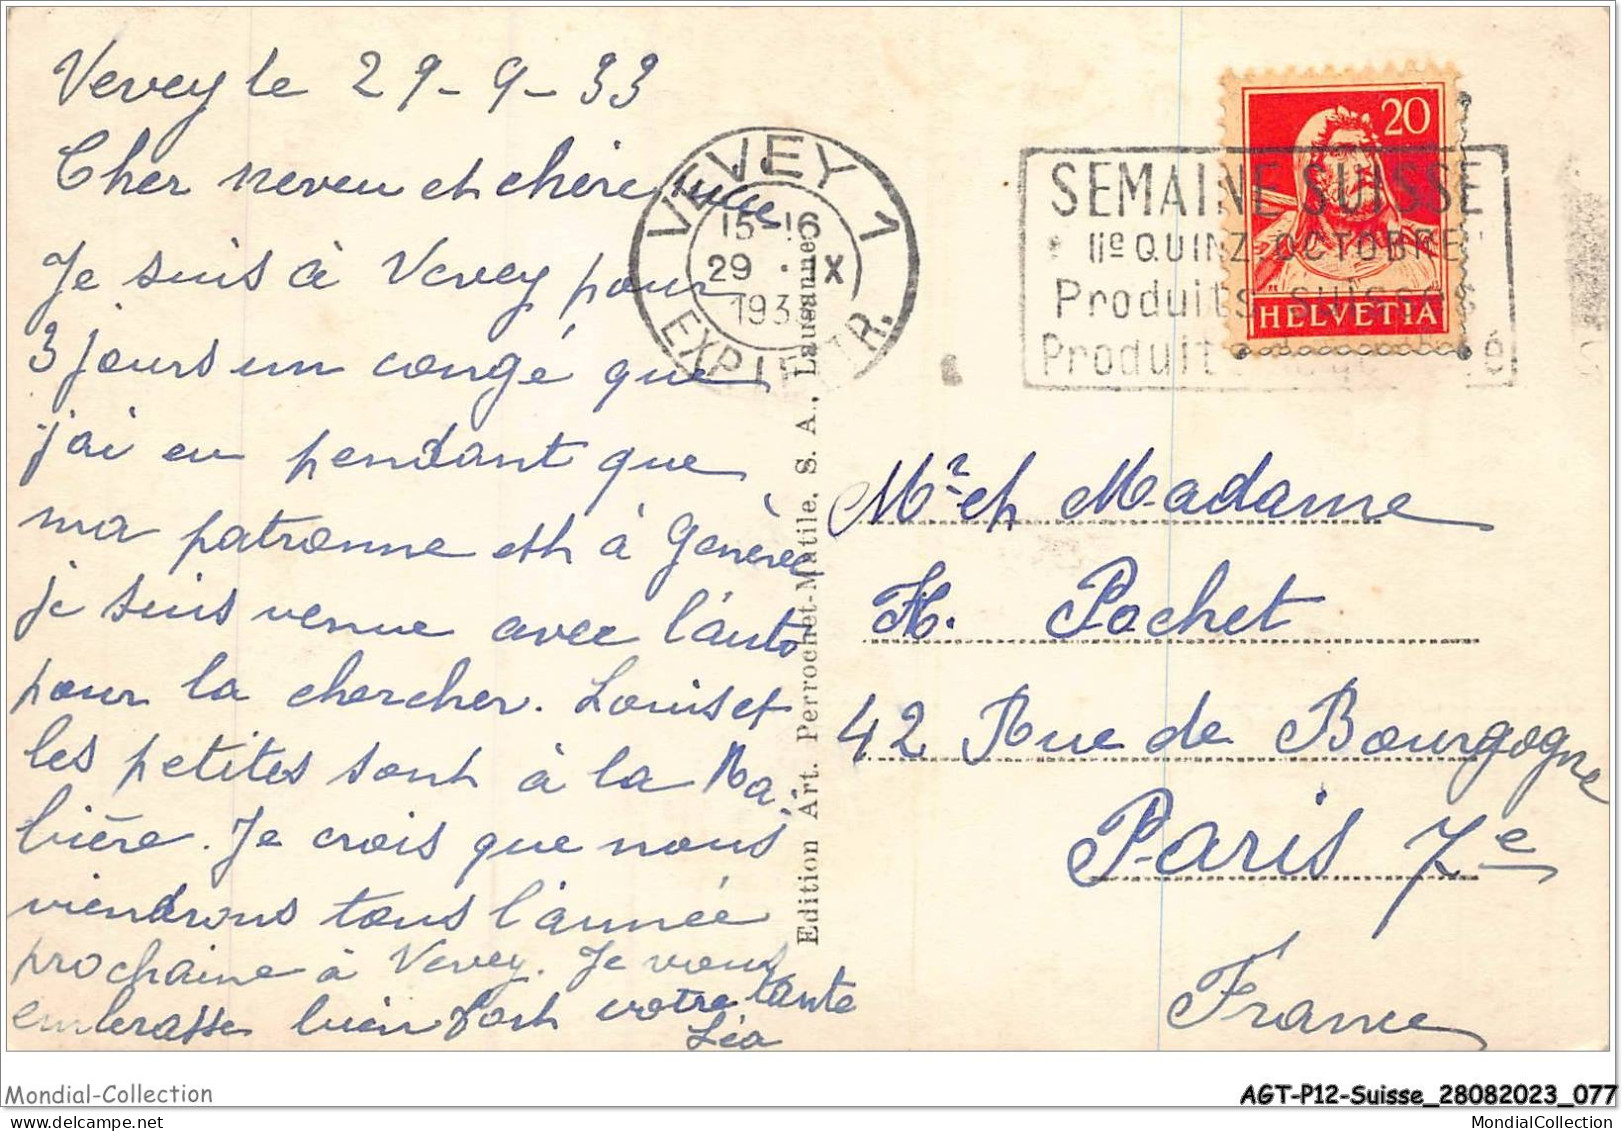 Vevey le 29-9-33
Cher neveu et chère nièce
Je suis à Vevey pour
3 jours un congé que
j'ai eu pendant que
ma patronne est à Genève
je suis venue avec l'auto
pour la chercher. Louis et
les petites sont à la Ra
bière. Je crois que nous
viendrons tous l'année
prochaine à Vevey. Je vous
embrasse bien fort votre tante
Léa
VEVEY 1
15-16
29 . IX
193
EXP. LETTR.
SEMAINE SUISSE
IIe QUINZ. OCTOBRE
Produits suisses
Produits
20
HELVETIA
Edition Art. Perrochet-Matile, S. A., Lausanne
Mr et Madame
H. Pochet
42 Rue de Bourgogne
Paris 7e
France
Mondial-Collection
AGT-P12-Suisse_28082023_077
MondialCollection